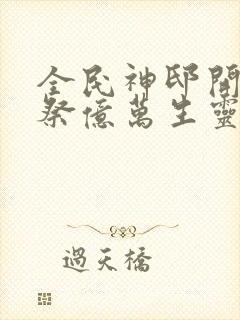 全民神邸開
祭億萬生靈
過天橋